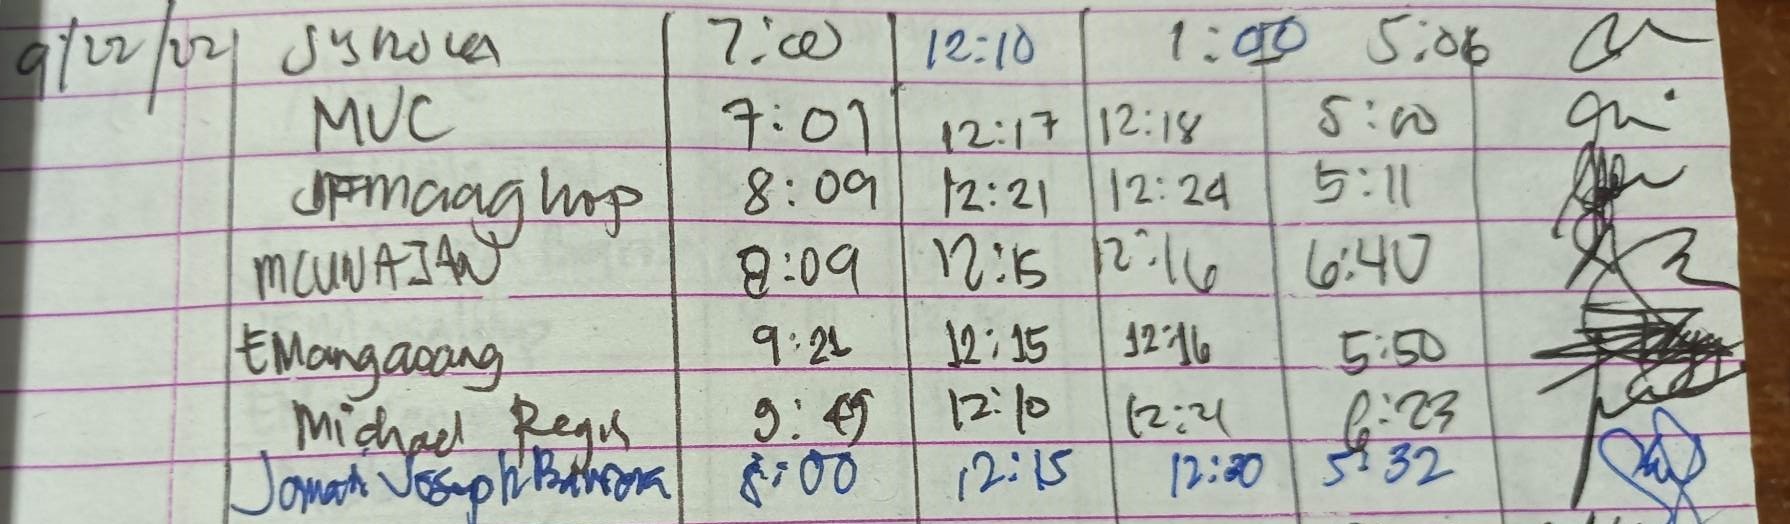 9/22/22 7:00 12:10 1:00 5:06
MVC 7:01 12:17 12:18 5:00
JFmaaghop 8:09 12:21 12:24 5:11
MCUNAJAN 8:09 12:15 12:16 6:40
EMangaoang 9:21 12:15 12:16 5:50
Michael Regis 9:49 12:10 12:21 6:23
Joseph 8:00 12:15 12:20 5:32